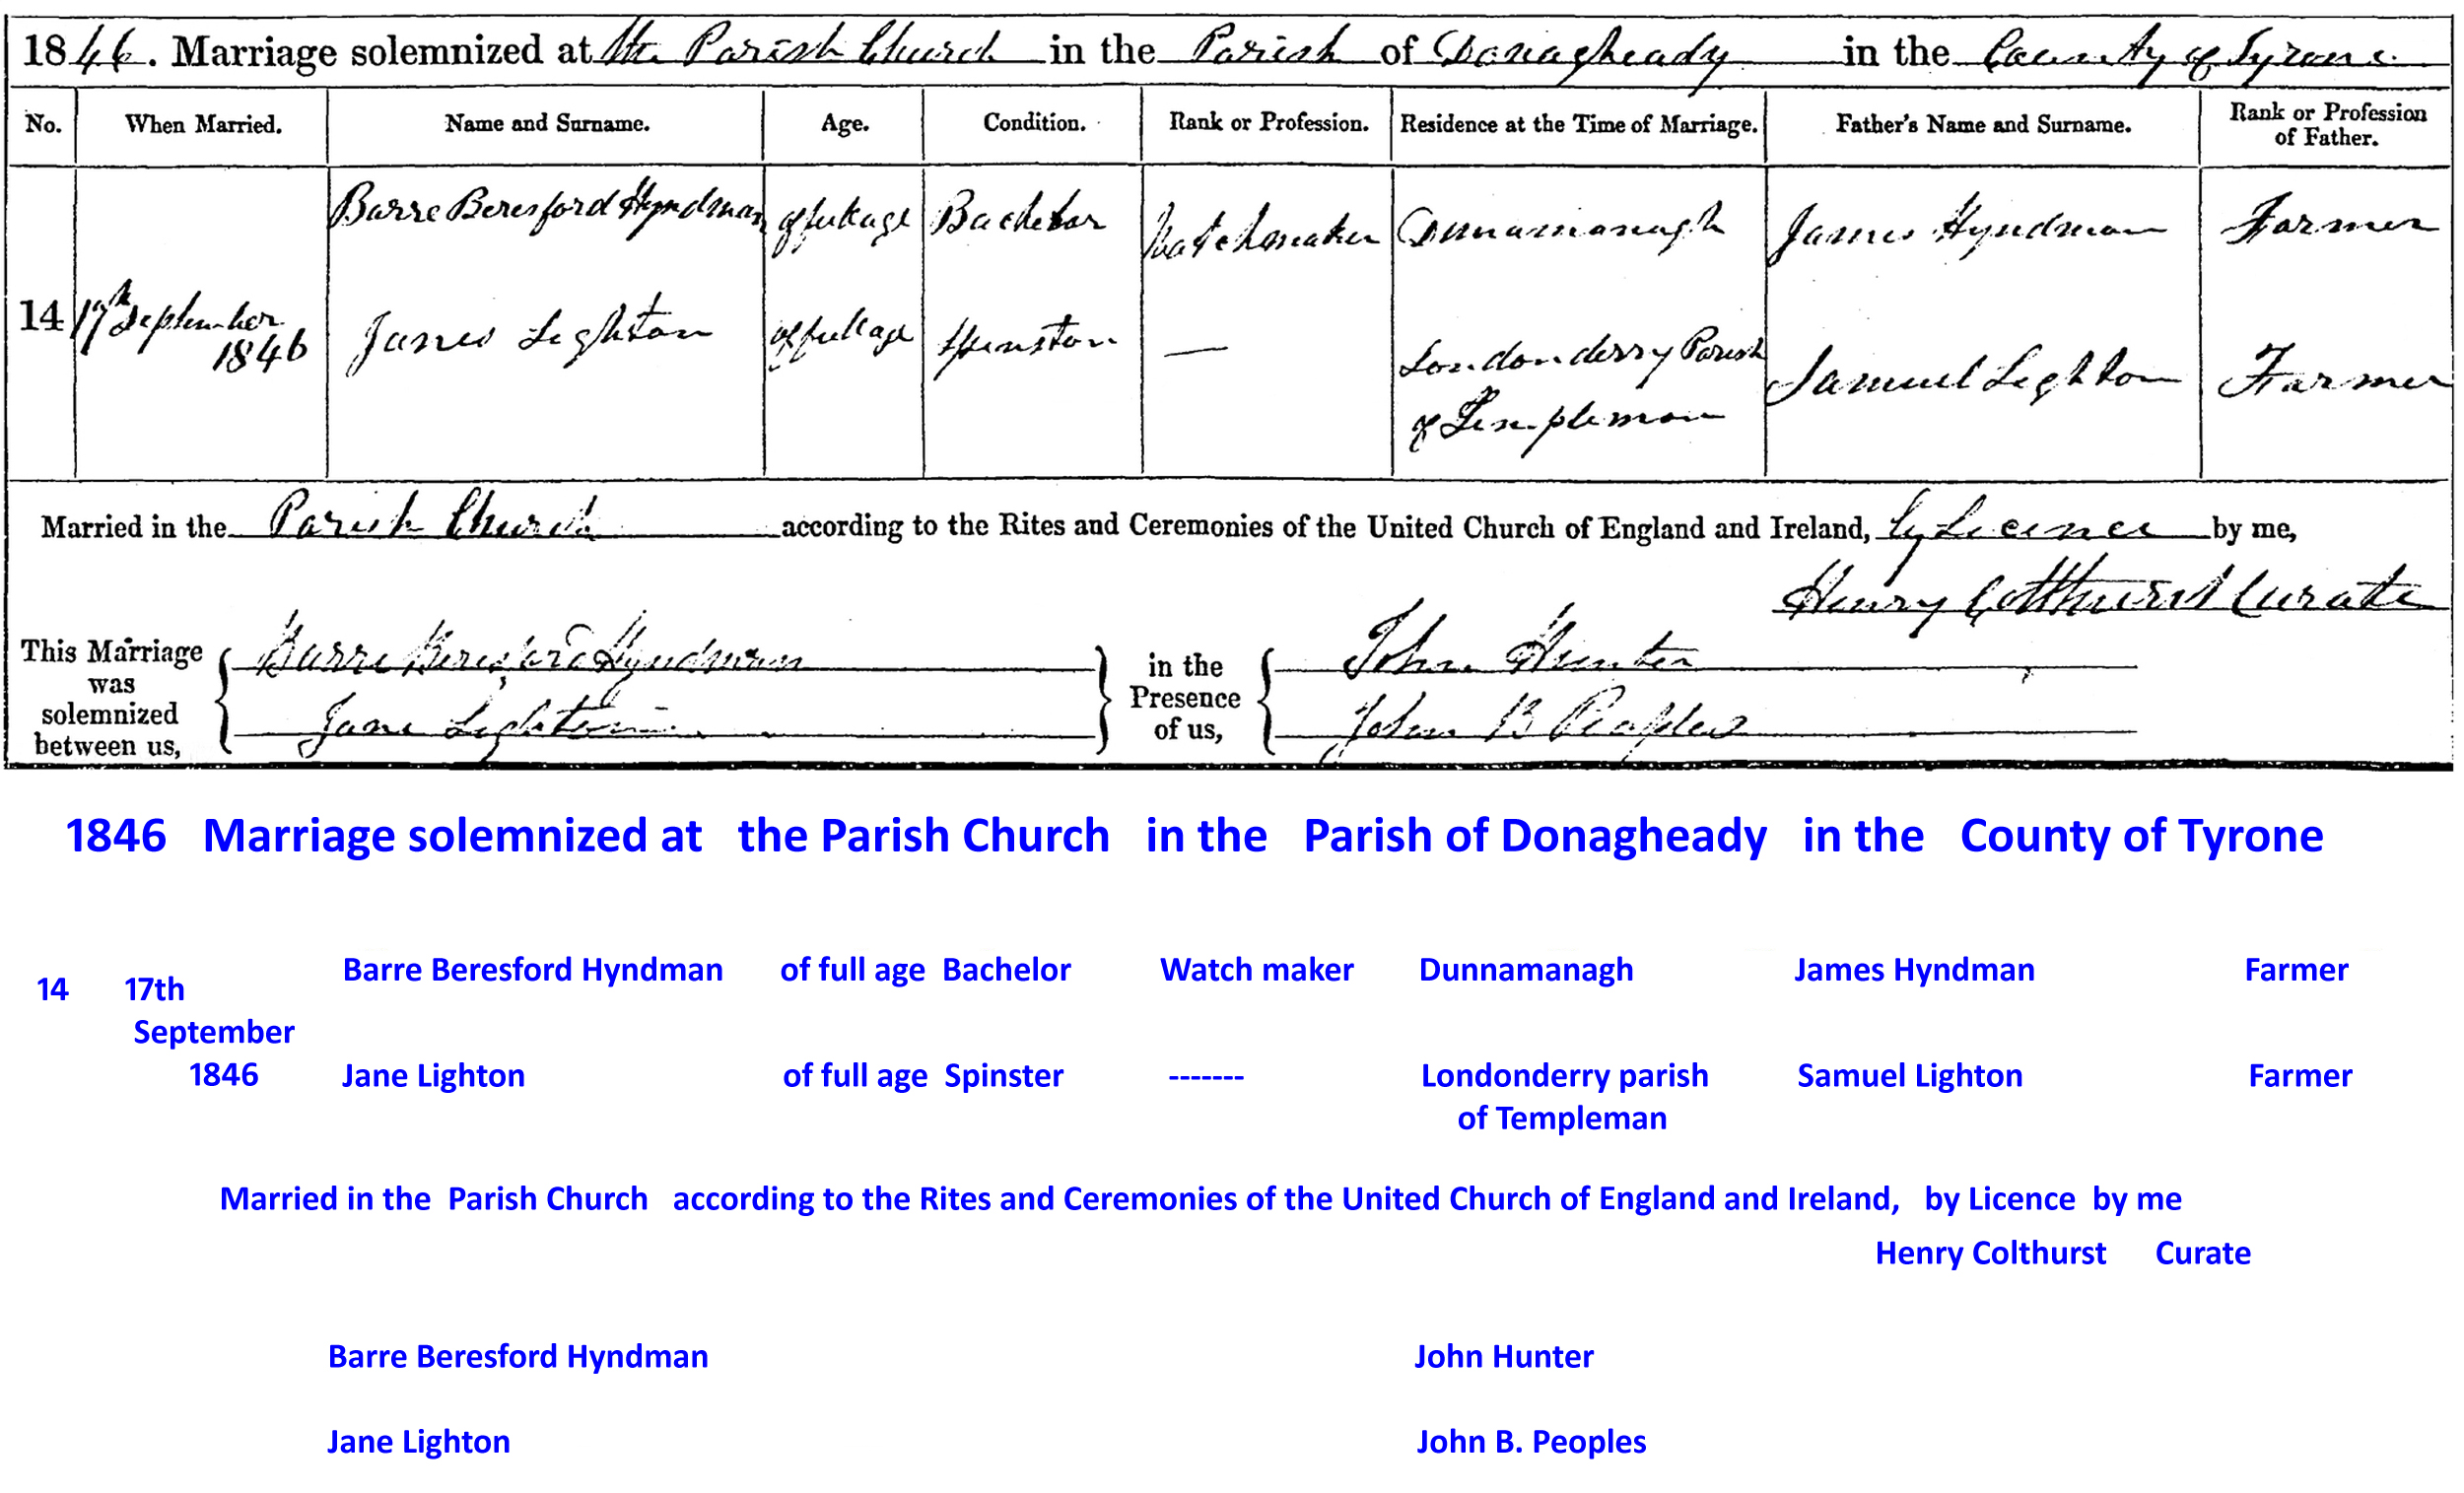 1846. Marriage solemnized at the Parish Church in the Parish of Donagheady in the County of Tyrone
No. When Married. Name and Surname. Age. Condition. Rank or Profession. Residence at the Time of Marriage. Father's Name and Surname. Rank or Profession of Father.
Barre Beresford Hyndman of full age Bachelor Watchmaker Dunnamanagh James Hyndman Farmer
14 17th September 1846
Jane Lighton of full age Spinster — Londonderry Parish of Templemon Samuel Lighton Farmer
Married in the Parish Church according to the Rites and Ceremonies of the United Church of England and Ireland, by Licence by me,
Henry Colthurst Curate
This Marriage was solemnized between us, Barre Beresford Hyndman in the Presence of us, John Hunter
Jane Lighton John B Peoples
1846 Marriage solemnized at the Parish Church in the Parish of Donagheady in the County of Tyrone
Barre Beresford Hyndman of full age Bachelor Watch maker Dunnamanagh James Hyndman Farmer
14 17th
September
1846 Jane Lighton of full age Spinster ------- Londonderry parish Samuel Lighton Farmer
of Templeman
Married in the Parish Church according to the Rites and Ceremonies of the United Church of England and Ireland, by Licence by me
Henry Colthurst Curate
Barre Beresford Hyndman John Hunter
Jane Lighton John B. Peoples